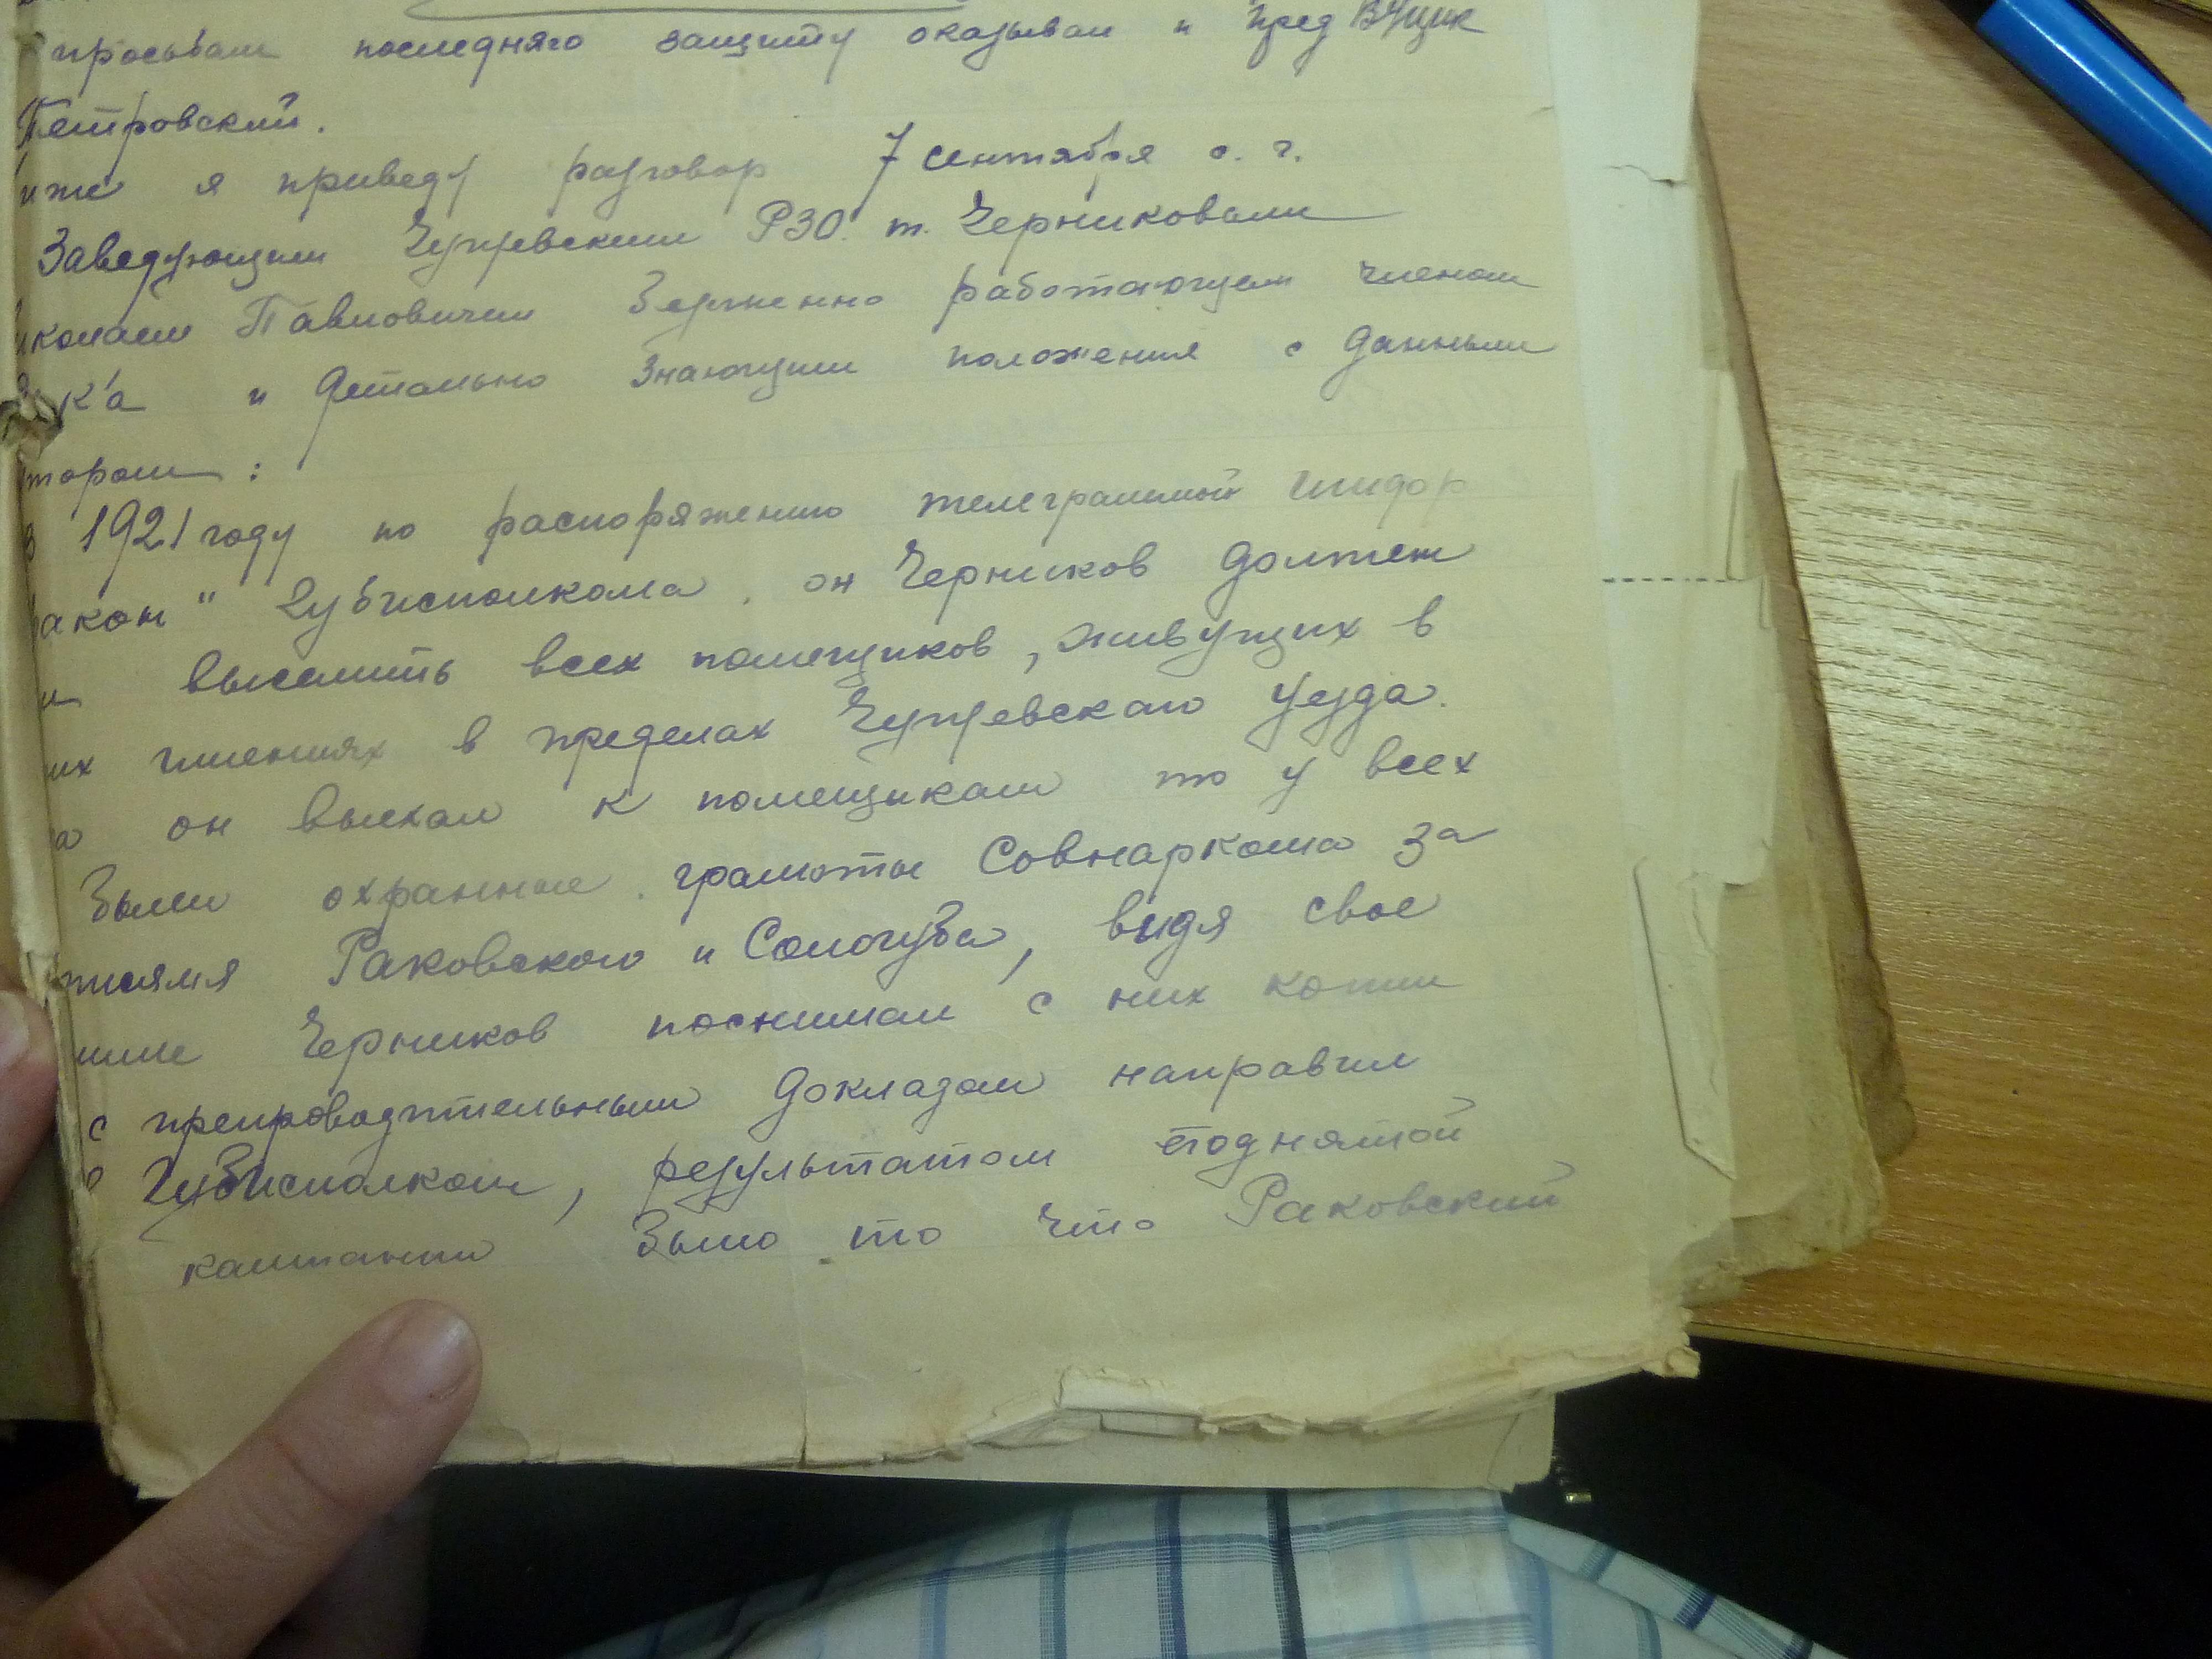 просьбам последняго защиту оказывал и пред ВУЦИК
Петровский.
иже я приведу разговор 7 сентября с. г.
Заведующим Чугуевским РЗО. т. Черниковым
иколаем Павловичем работающем членом
ка и Детально Знающим положения с данным
тором:
в 1921 году по распоряжению телеграммой шифор
акон" Губисполкома. он Черников Должен
выселить всех помещиков, живущих в
их имениях в пределах Чугуевскаго уезда.
он выехал к помещикам то у всех
были охранные грамоты Совнаркома за
писямя Раковского и Сологуба, видя свое
Черников поснимал с них копии
с препроводительным Докладом направил
в Губисполком, результатом поднятой
кампании было то что Раковский